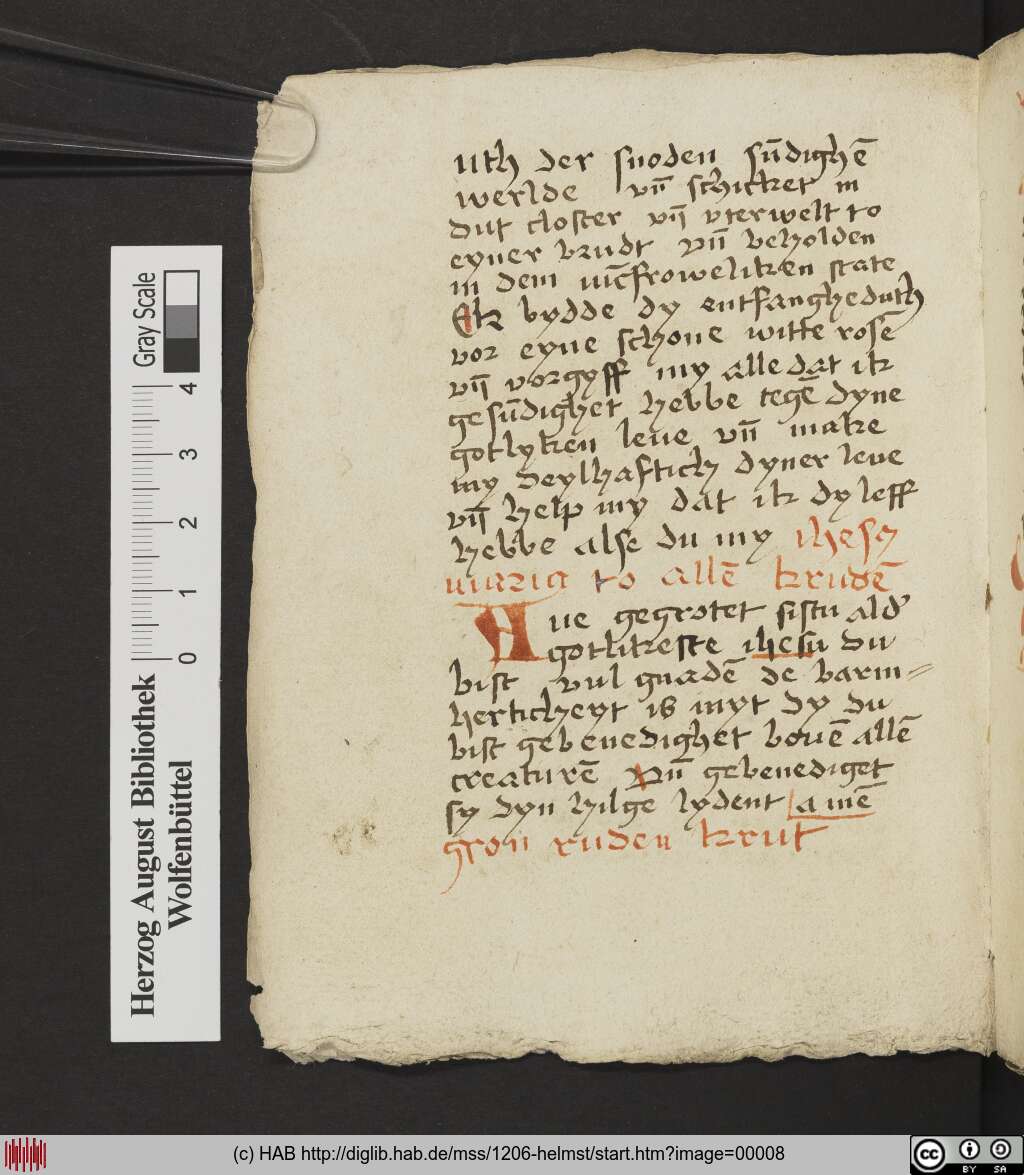 uth der snoden sūdighē
werlde vn̄ schicket in
dut closter vn̄ vterwelt to
eyner brudt vn̄ beholden
in dem iūcfroweliken state
Ek bydde dy entfanghe duth
vor eyne schone witte rosē
vn̄ vorgyff my alle dat ik
gesūdighet hebbe tegē dyne
gotlyken leue vn̄ make
my deylhaftich dyner leue
vn̄ help my dat ik dy leff
hebbe alse du my ihesꝫ
maria to allē krudē
Aue gegrotet sistu ald'
gotlikeste ihesu du
bist vul gnadē de barm=
herticheyt is myt dy du
bist gebenedighet bouē allē
creaturē Vn̄ gebenediget
sy dyn hilge lydent amē
gron ruden krut
Gray Scale
0 1 2 3 4
Herzog August Bibliothek
Wolfenbüttel
(c) HAB http://diglib.hab.de/mss/1206-helmst/start.htm?image=00008
cc BY SA